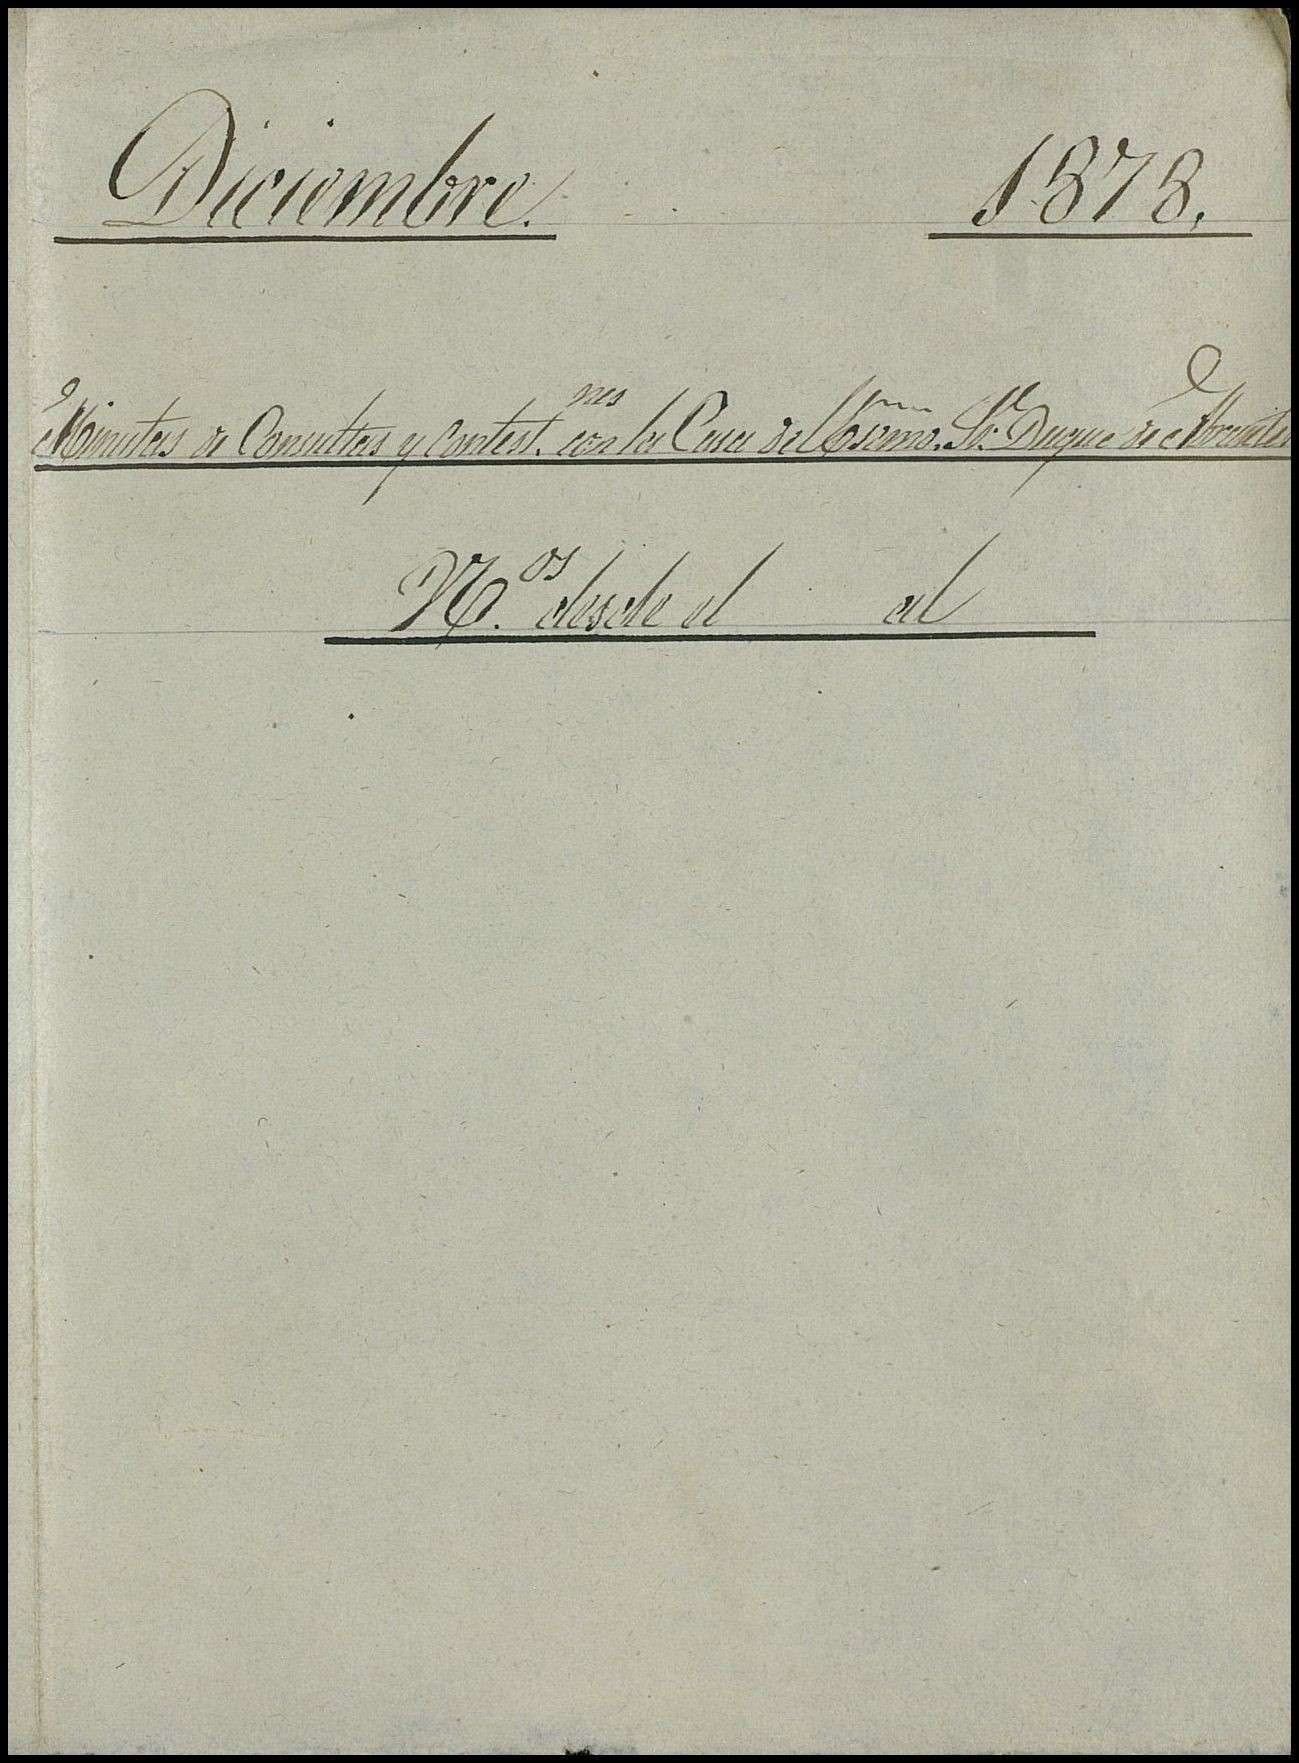 Diciembre. 1878.
Minutas de Consultas y Contest.nes con la Casa del Escmo. Sr. Duque de
N.os desde el al